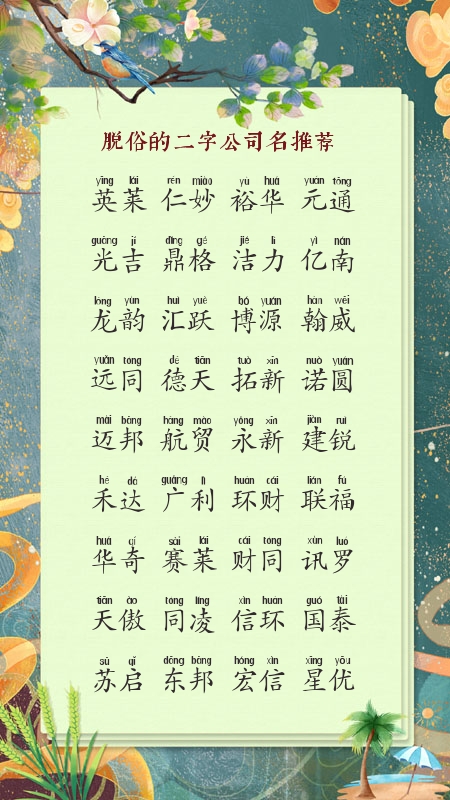 脱俗的二字公司名推荐
yīng lái rén miào yù huá yuán tōng
英莱 仁妙 裕华 元通
guāng jí dǐng gé jié lì yì nán
光吉 鼎格 洁力 亿南
lóng yùn huì yuè bó yuán hàn wēi
龙韵 汇跃 博源 翰威
yuǎn tóng dé tiān tuò xīn nuò yuán
远同 德天 拓新 诺圆
mài bāng háng mào yǒng xīn jiàn ruì
迈邦 航贸 永新 建锐
hé dá guǎng lì huán cái lián fú
禾达 广利 环财 联福
huá qí sài lái cái tóng xùn luó
华奇 赛莱 财同 讯罗
tiān ào tóng líng xìn huán guó tài
天傲 同凌 信环 国泰
sū qǐ dōng bāng hóng xìn xīng yōu
苏启 东邦 宏信 星优